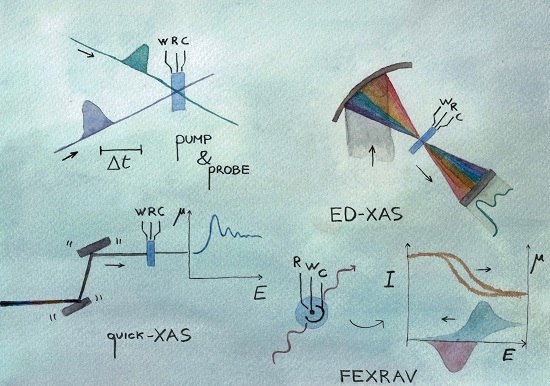 W R C
Δt
PUMP
&
PROBE
W
R
C
ED-XAS
W R C
μ
"
"
"
"
E
quick-XAS
R W C
I
μ
E
FEXRAV